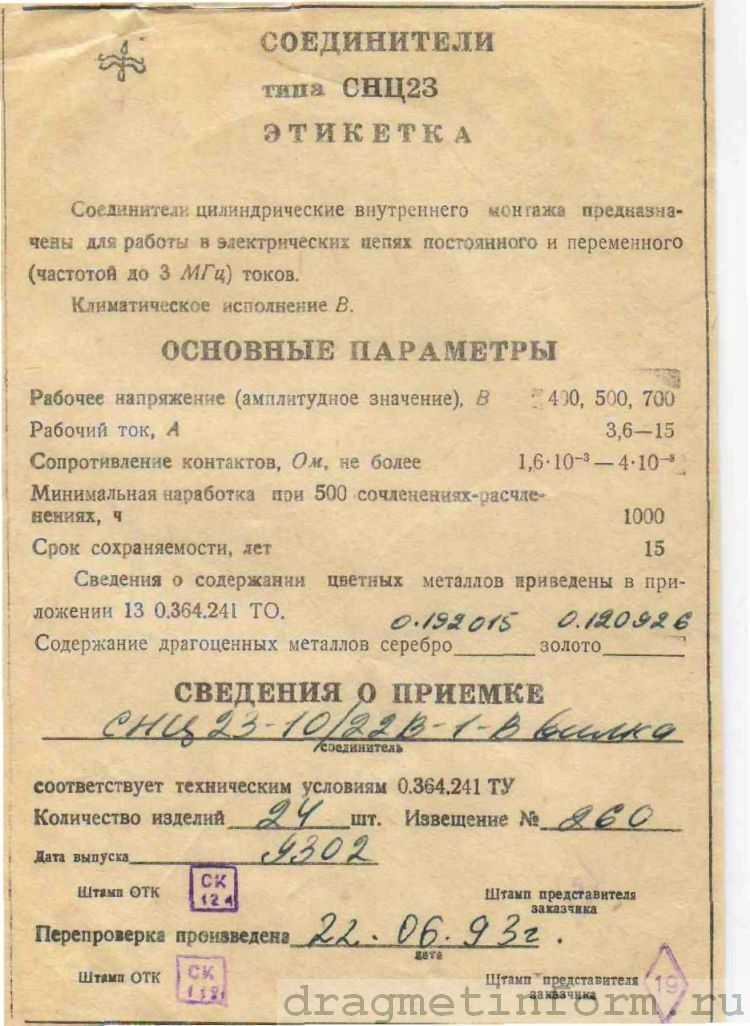 СОЕДИНИТЕЛИ
типа СНЦ23
ЭТИКЕТКА
Соединители цилиндрические внутреннего монтажа предназна-
чены для работы в электрических цепях постоянного и переменного
(частотой до 3 МГц) токов.
Климатическое исполнение В.
ОСНОВНЫЕ ПАРАМЕТРЫ
Рабочее напряжение (амплитудное значение), В 400, 500, 700
Рабочий ток, А 3,6—15
Сопротивление контактов, Ом, не более 1,6·10⁻³ — 4·10⁻³
Минимальная наработка при 500 сочленениях-расчле-
нениях, ч 1000
Срок сохраняемости, лет 15
Сведения о содержании цветных металлов приведены в при-
ложении 13 0.364.241 ТО.
0.192015 0.120926
Содержание драгоценных металлов серебро золото
СВЕДЕНИЯ О ПРИЕМКЕ
СНЦ 23-10/22В-1-В вилка
соединитель
соответствует техническим условиям 0.364.241 ТУ
Количество изделий 24 шт. Извещение № 260
Дата выпуска 9302
Штамп ОТК СК Штамп представителя
заказчика
Перепроверка произведена 22.06.93г.
дата
Штамп ОТК СК Штамп представителя 19
заказчика
dragmetinform.ru